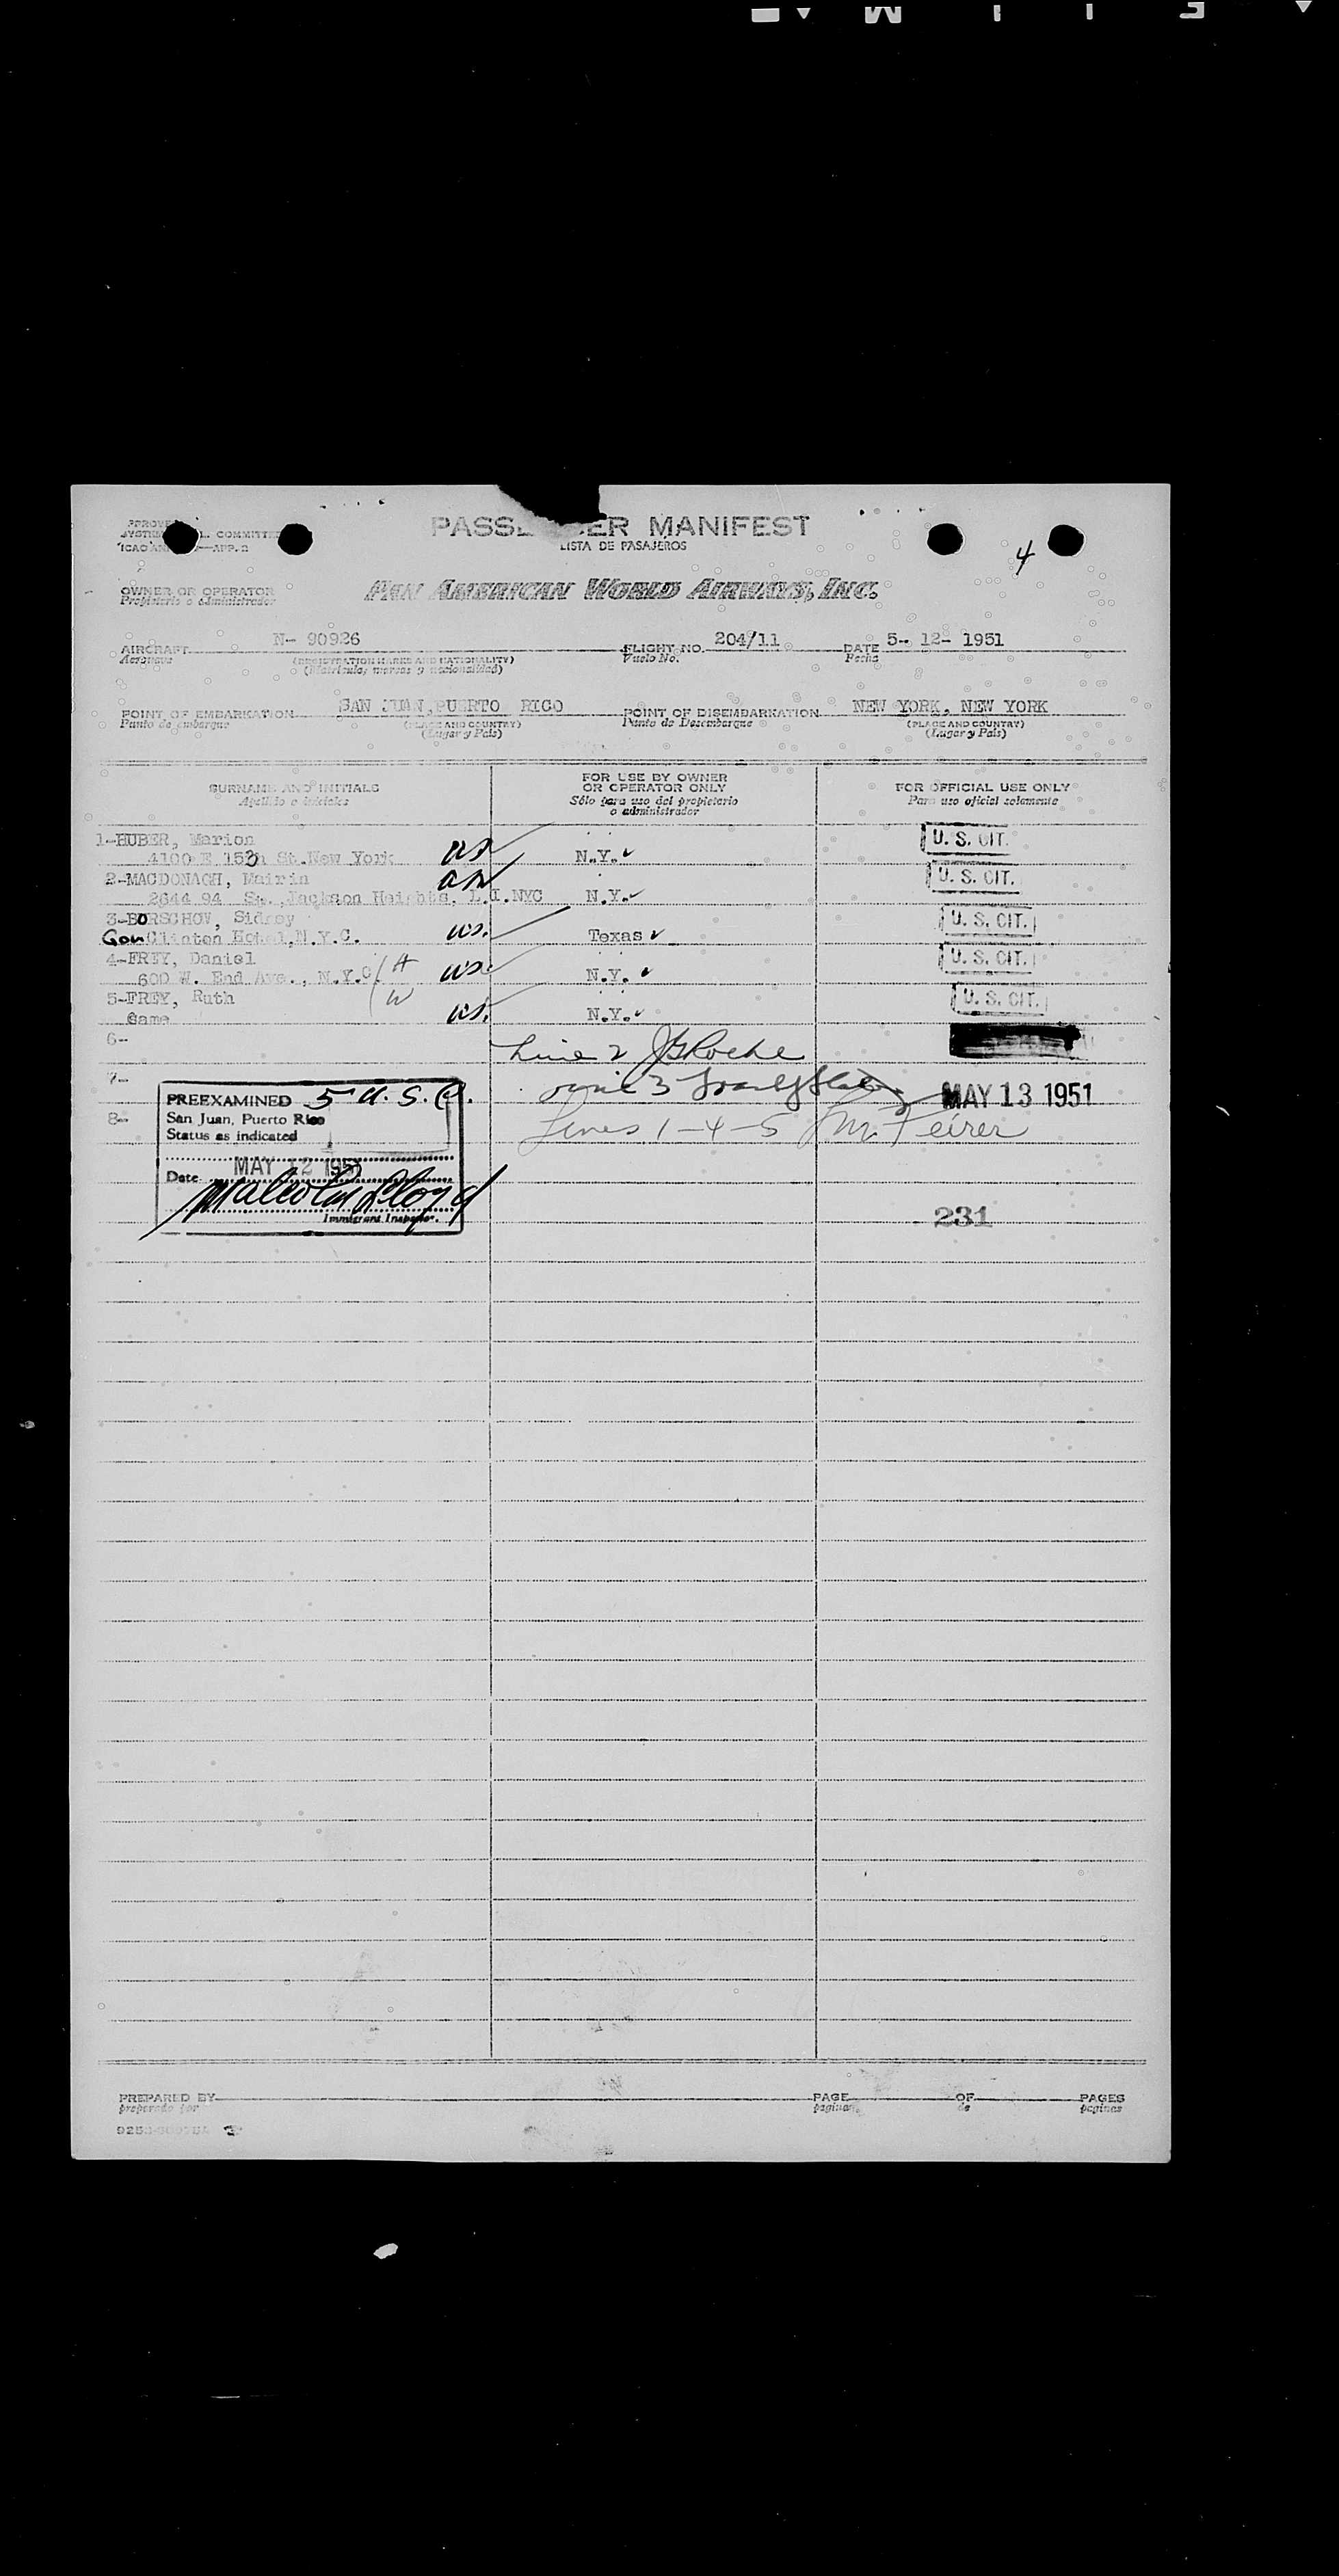 PASSENGER MANIFEST
LISTA DE PASAJEROS
4
OWNER OR OPERATOR
Propietario o administrador
PAN AMERICAN WORLD AIRWAYS, INC.
AIRCRAFT N- 90926 FLIGHT NO. 204/11 DATE 5- 12- 1951
Aeronave (REGISTRATION MARKS AND NATIONALITY) Vuelo No. Fecha
(Matricula, marcas y nacionalidad)
POINT OF EMBARKATION SAN JUAN, PUERTO RICO POINT OF DISEMBARKATION NEW YORK, NEW YORK
Punto de embarque (PLACE AND COUNTRY) Punto de Desembarque (PLACE AND COUNTRY)
(Lugar y Pais) (Lugar y Pais)
SURNAME AND INITIALS FOR USE BY OWNER OR OPERATOR ONLY FOR OFFICIAL USE ONLY
Apellido e iniciales Sólo para uso del propietario o administrador Para uso oficial solamente
1-HUBER, Marion U. S. CIT.
4100 E 153 St. New York us N.Y.
2-MACDONAGH, Mairin U. S. CIT.
2644 94 St., Jackson Heights, L.I. NYC N.Y.
3-BORSCHOW, Sidney U. S. CIT.
Gov Clinton Hotel, N.Y.C. us. Texas
4-FREY, Daniel U. S. CIT.
600 W. End Ave., N.Y.C H us. N.Y.
5-FREY, Ruth W U. S. CIT.
Same us. N.Y.
6-
Line 2 J Roche
7-
Line 3
MAY 13 1951
8-
Lines 1-4-5 M. Feirer
PREEXAMINED 5 U.S.C.
San Juan, Puerto Rico
Status as indicated
MAY 12 1951
Date
Malcolm Lloyd
Immigrant Inspector.
231
PREPARED BY PAGE OF PAGES
preparado por paginas de paginas